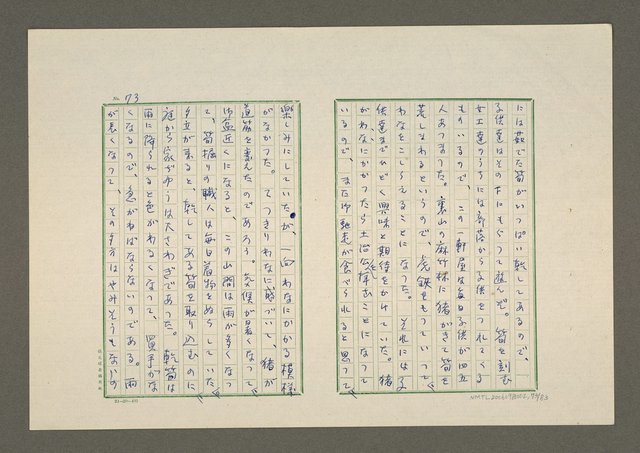 には茹でた筍がいっぱい乾してあるので、
子供達はその下にもぐって遊んだ。筍を刻む
女工達のうちには部落から子供をつれてくる
ものもいるので、この一軒屋は毎日子供が四五
人あつまった。裏山の麻竹林に猪がきて筍を
荒しまわるというので、虎鋏をもっていって
わなをこしらえることになった。それには子
供達までひどく興味と期待をかけていた。猪
がわなにかかったら土治公を拝むことになって
いるので、また御馳走が食べられると思って
楽しみにしていたが、一向わなにかかる模様
がなかった。てっきりわなに感づいて、猪が
道筋を変えたのであろう。気候が暑くなって
中元近くになると、この山間は雨が多くなっ
て、筍掘りの職人は毎日着物をぬらしていた。
夕立が来ると、乾してある筍を取り込むのに
庭から家ぢゆうは大さわぎであった。乾筍は
雨に降られると色がわるくなって、買手がな
くなるので、急がねばならないのである。雨
が長くなって、その夕方はやみそうもないの
No. 73
NMTL20060190002, 79/83